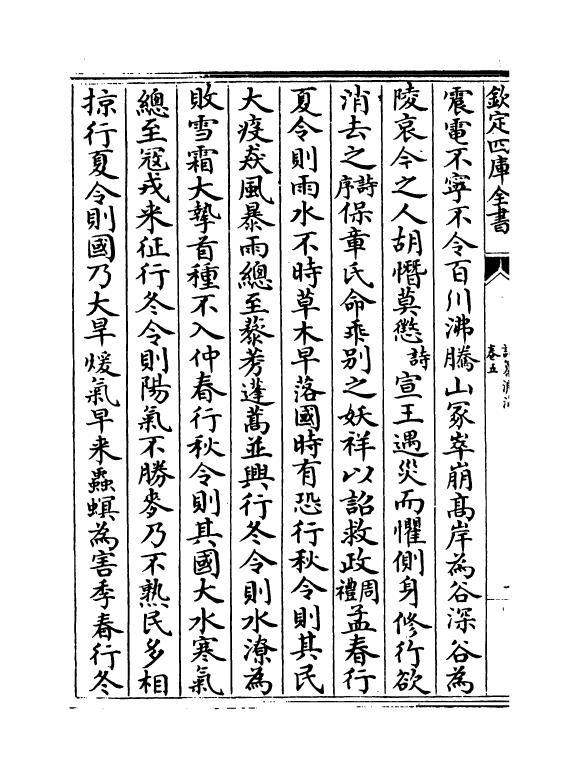 欽定四庫全書
卷五
震電不寧不令百川沸騰山冢崒崩髙岸為谷深谷為
陵哀今之人胡憯莫懲詩宣王遇災而懼側身修行欲
消去之詩序保章氏命乖别之妖祥以詔救政周禮孟春行
夏令則雨水不時草木早落國時有恐行秋令則其民
大疫猋風暴雨總至藜莠蓬蒿並興行冬令則水潦為
敗雪霜大摯首種不入仲春行秋令則其國大水寒氣
總至冦戎来征行冬令則陽氣不勝麥乃不熟民多相
掠行夏令則國乃大旱煖氣早来蟲螟為害季春行冬